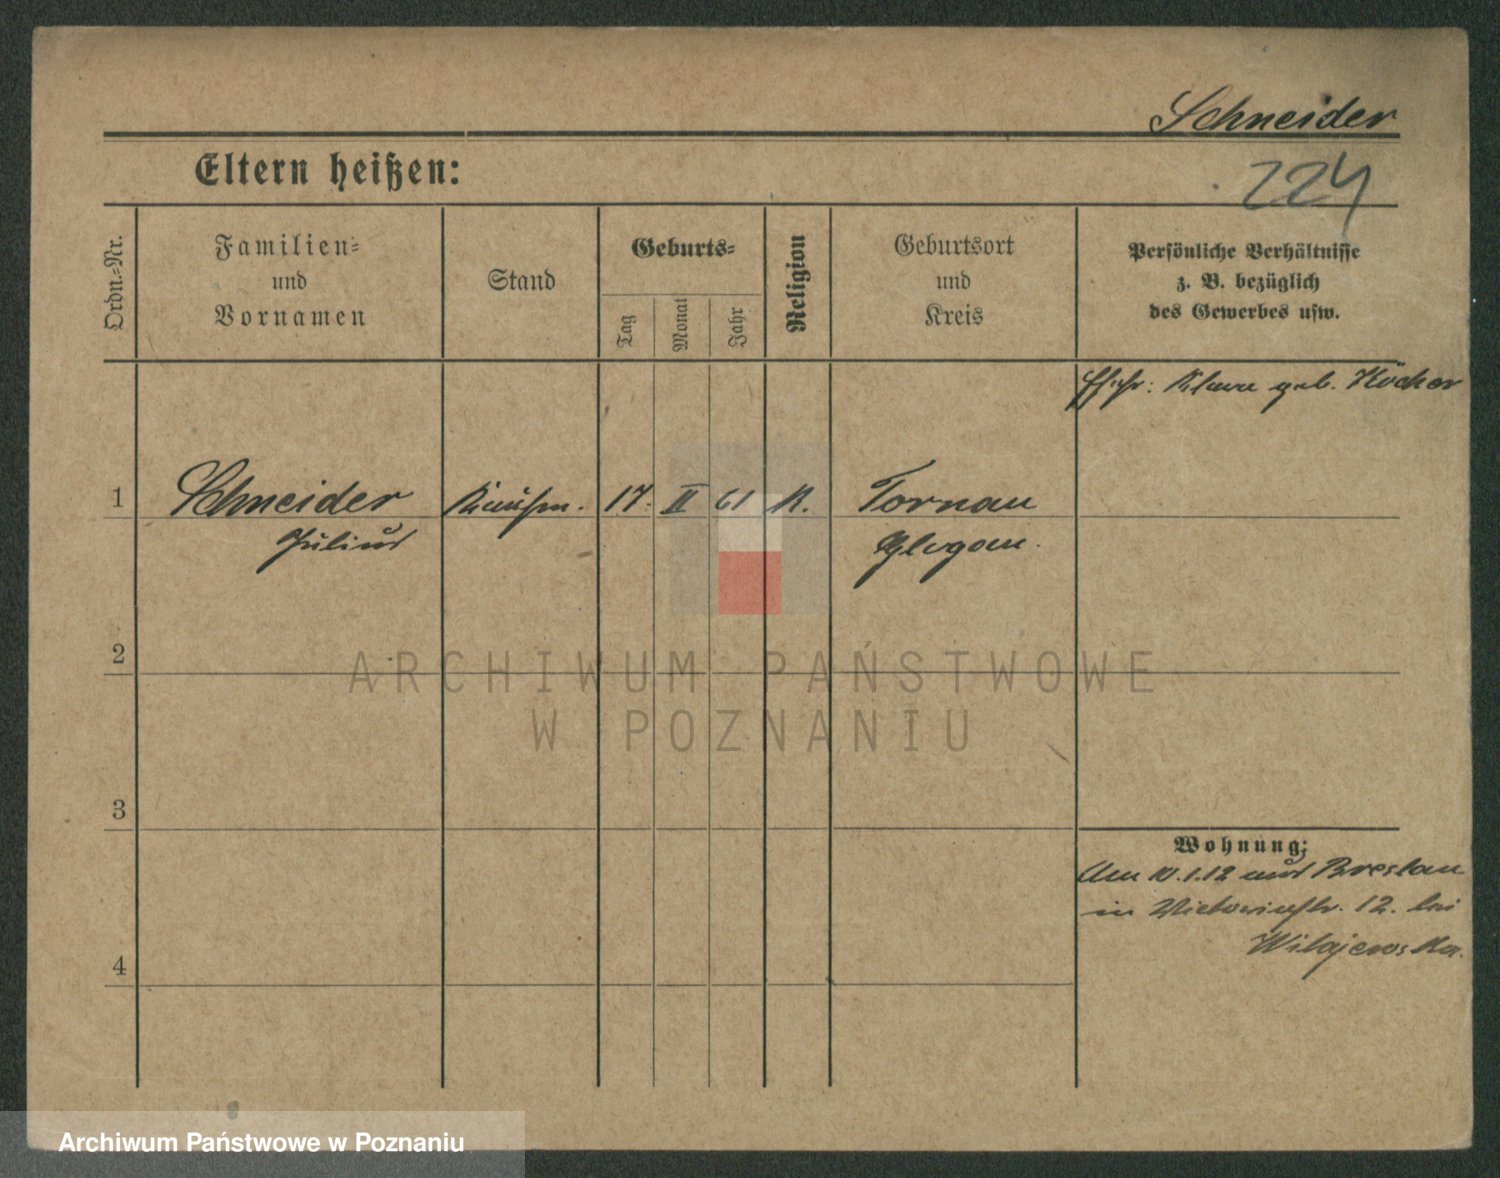 Schneider
Eltern heißen:
224
Ordn.-Nr.
Familien-
und
Vornamen
Stand
Geburts-
Tag
Monat
Jahr
Religion
Geburtsort
und
Kreis
Persönliche Verhältnisse
z. B. bezüglich
des Gewerbes usw.
Ehefr: Klara geb. Höcker
1
Schneider
Kaufm.
17.
II
61
K.
Tornau
Julius
Glogau.
2
ARCHIWUM PAŃSTWOWE
W POZNANIU
3
Wohnung:
Am 10.1.12 aus Breslau
in Victoriastr. 12. bei
4
Archiwum Państwowe w Poznaniu